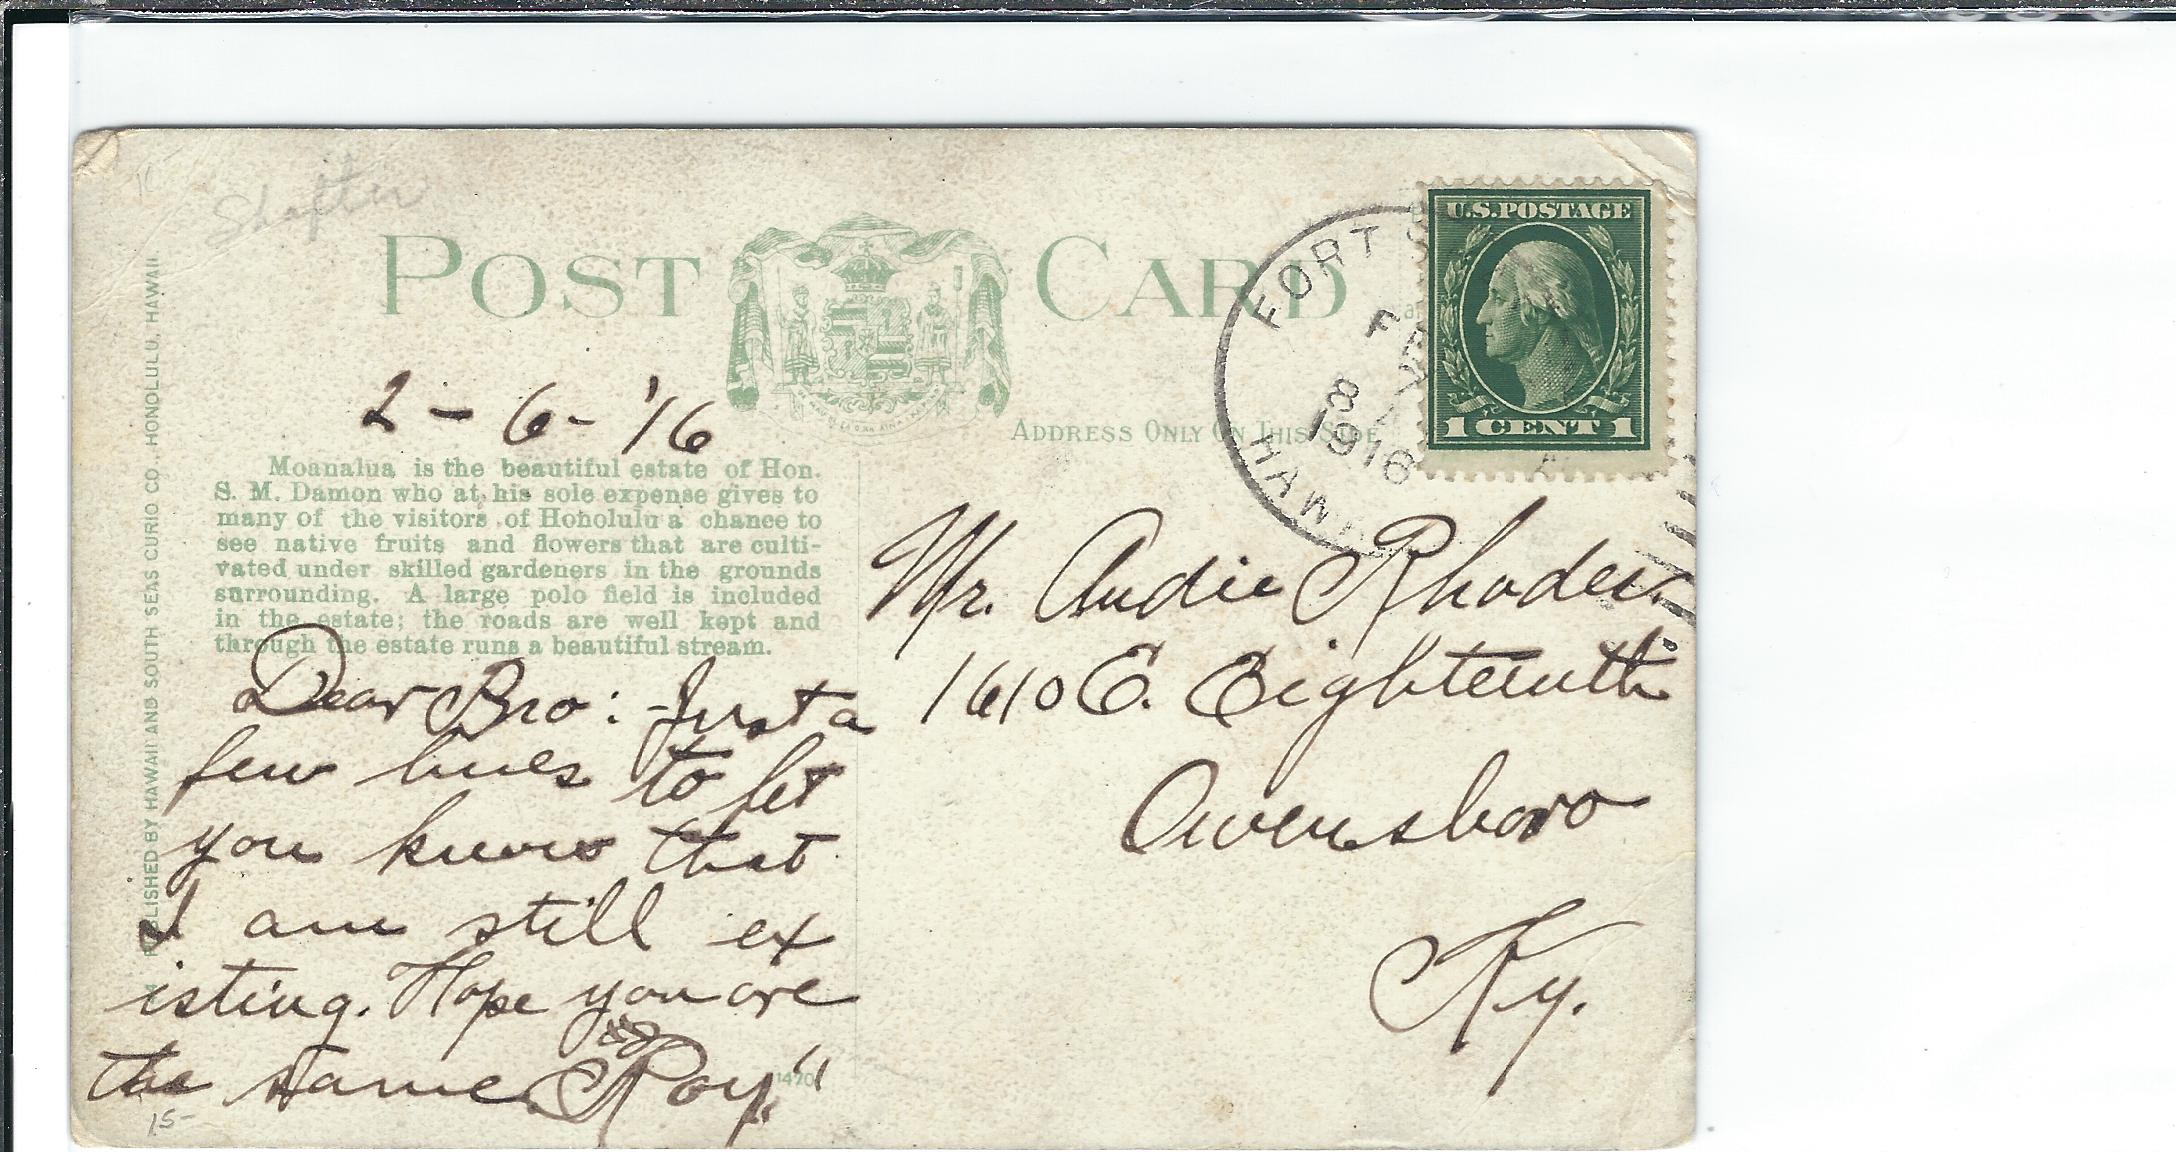 Shafter
POST CARD
U.S. POSTAGE
1 CENT 1
FORT S
FE
7
8 A
1916
HAWAII
2-6-'16
ADDRESS ONLY ON THIS SIDE
Moanalua is the beautiful estate of Hon.
S. M. Damon who at his sole expense gives to
many of the visitors of Honolulu a chance to
see native fruits and flowers that are culti-
vated under skilled gardeners in the grounds
surrounding. A large polo field is included
in the estate; the roads are well kept and
through the estate runs a beautiful stream.
Dear Bro: - Just a
few lines to let
you know that
I am still ex
isting. Hope you are
the same. "Roy."
Mr. Audie Rhodes.
1610 E. Eighteenth
Owensboro
Ky.
PUBLISHED BY HAWAII AND SOUTH SEAS CURIO CO., HONOLULU, HAWAII.
15-